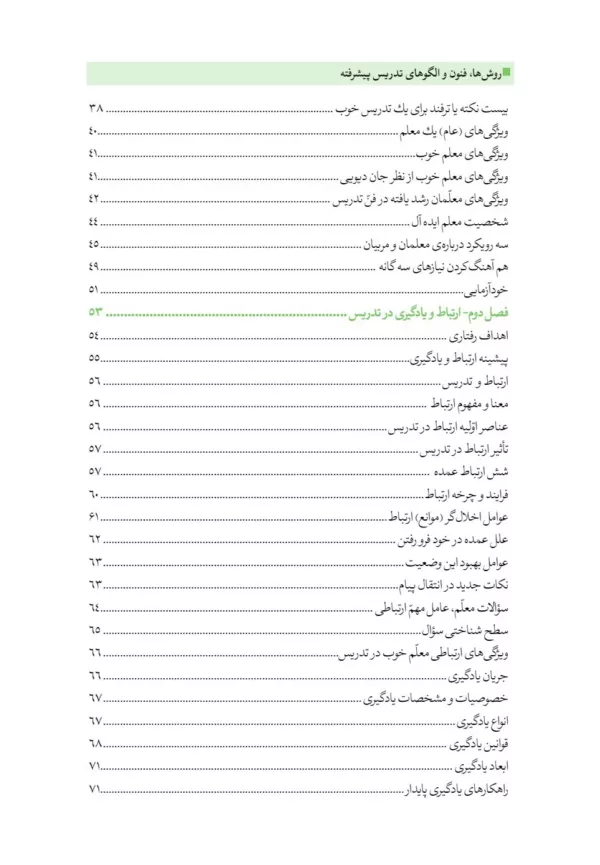 روش‌ها، فنون و الگوهای تدریس پیشرفته
بیست نکته یا ترفند برای یك تدریس خوب ..... ۳۸
ویژگی‌های (عام) یك معلم ..... ۴۰
ویژگی‌های معلم خوب ..... ۴۱
ویژگی‌های معلم خوب از نظر جان دیویی ..... ۴۱
ویژگی‌های معلّمان رشد یافته در فنّ تدریس ..... ۴۲
شخصیت معلم ایده آل ..... ۴۴
سه رویکرد درباره‌ی معلمان و مربیان ..... ۴۵
هم آهنگ کردن نیازهای سه گانه ..... ۴۹
خودآزمایی ..... ۵۱
فصل دوم- ارتباط و یادگیری در تدریس ..... ۵۳
اهداف رفتاری ..... ۵۴
پیشینه ارتباط و یادگیری ..... ۵۵
ارتباط و تدریس ..... ۵۶
معنا و مفهوم ارتباط ..... ۵۶
عناصر اوّلیه ارتباط در تدریس ..... ۵۶
تأثیر ارتباط در تدریس ..... ۵۷
شش ارتباط عمده ..... ۵۷
فرایند و چرخه ارتباط ..... ۶۰
عوامل اخلال‌گر (موانع) ارتباط ..... ۶۱
علل عمده در خود فرو رفتن ..... ۶۲
عوامل بهبود این وضعیت ..... ۶۳
نکات جدید در انتقال پیام ..... ۶۳
سؤالات معلّم، عامل مهمّ ارتباطی ..... ۶۴
سطح شناختی سؤال ..... ۶۵
ویژگی‌های ارتباطی معلّم خوب در تدریس ..... ۶۶
جریان یادگیری ..... ۶۶
خصوصیات و مشخصات یادگیری ..... ۶۷
انواع یادگیری ..... ۶۷
قوانین یادگیری ..... ۶۸
ابعاد یادگیری ..... ۷۱
راهکارهای یادگیری پایدار ..... ۷۱